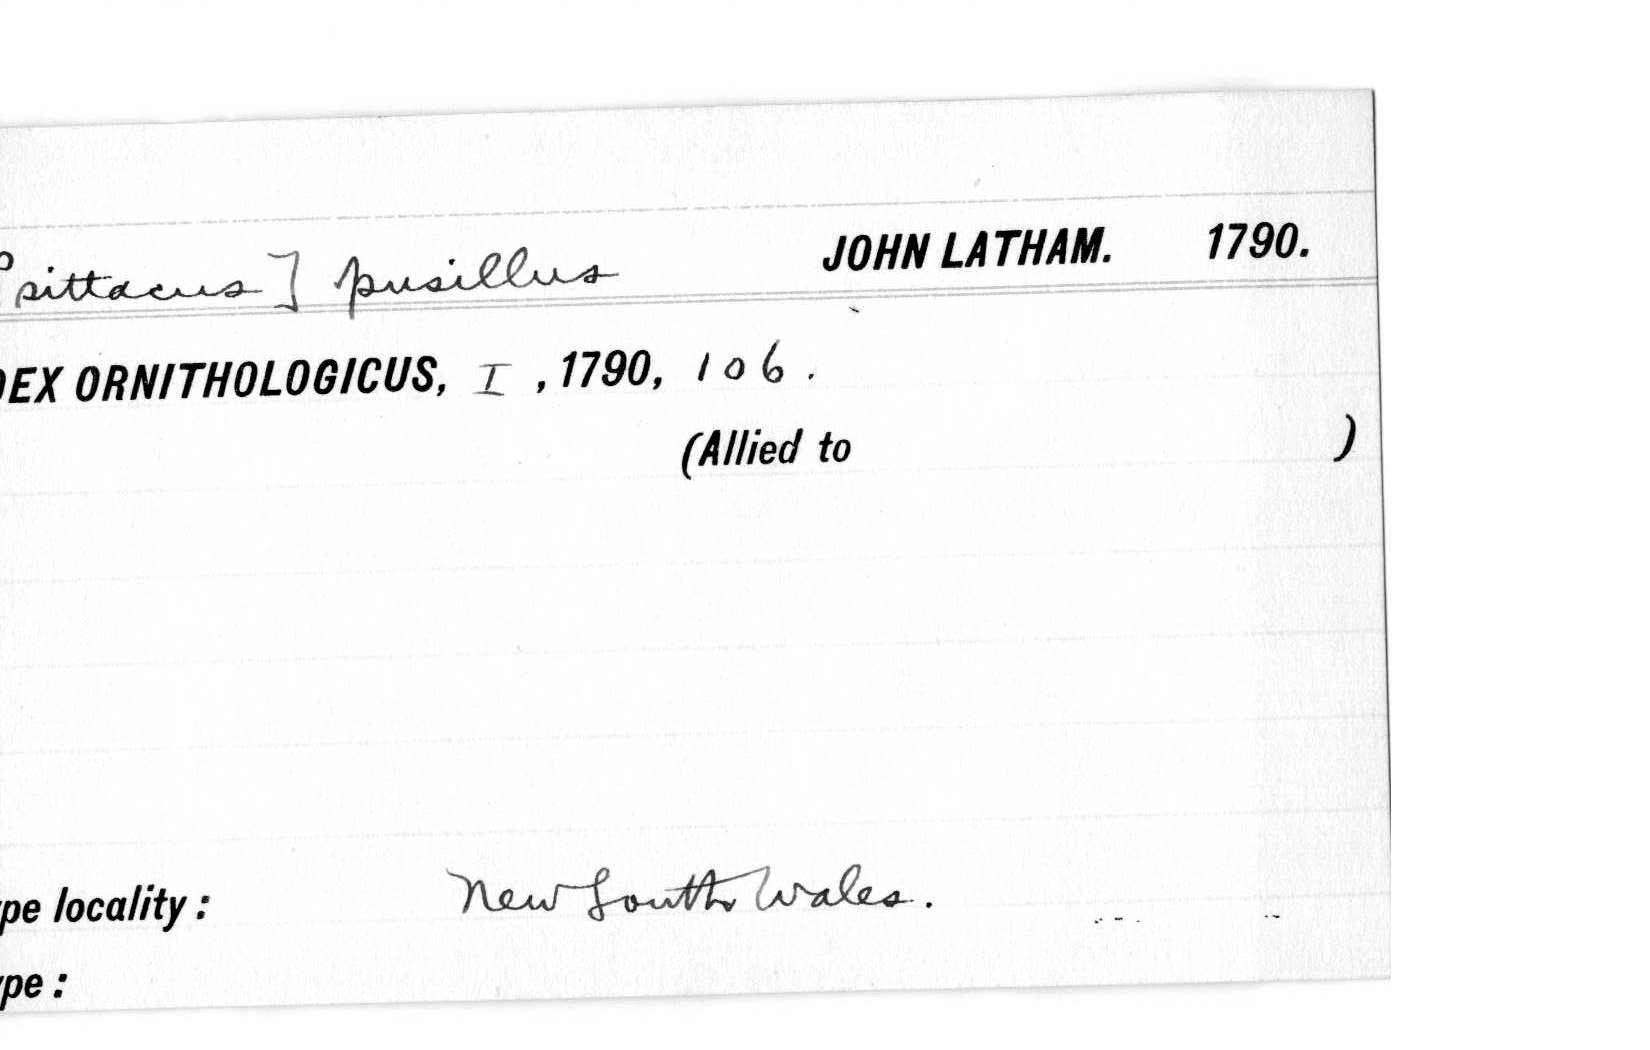 Psittacus] pusillus JOHN LATHAM. 1790.
DEX ORNITHOLOGICUS, I, 1790, 106.
(Allied to )
ype locality: New South Wales.
ype: